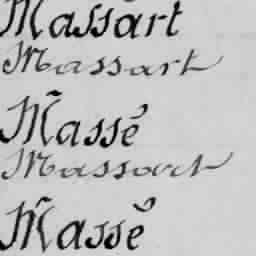 Massart
Massart
Massé
Massart
Massé